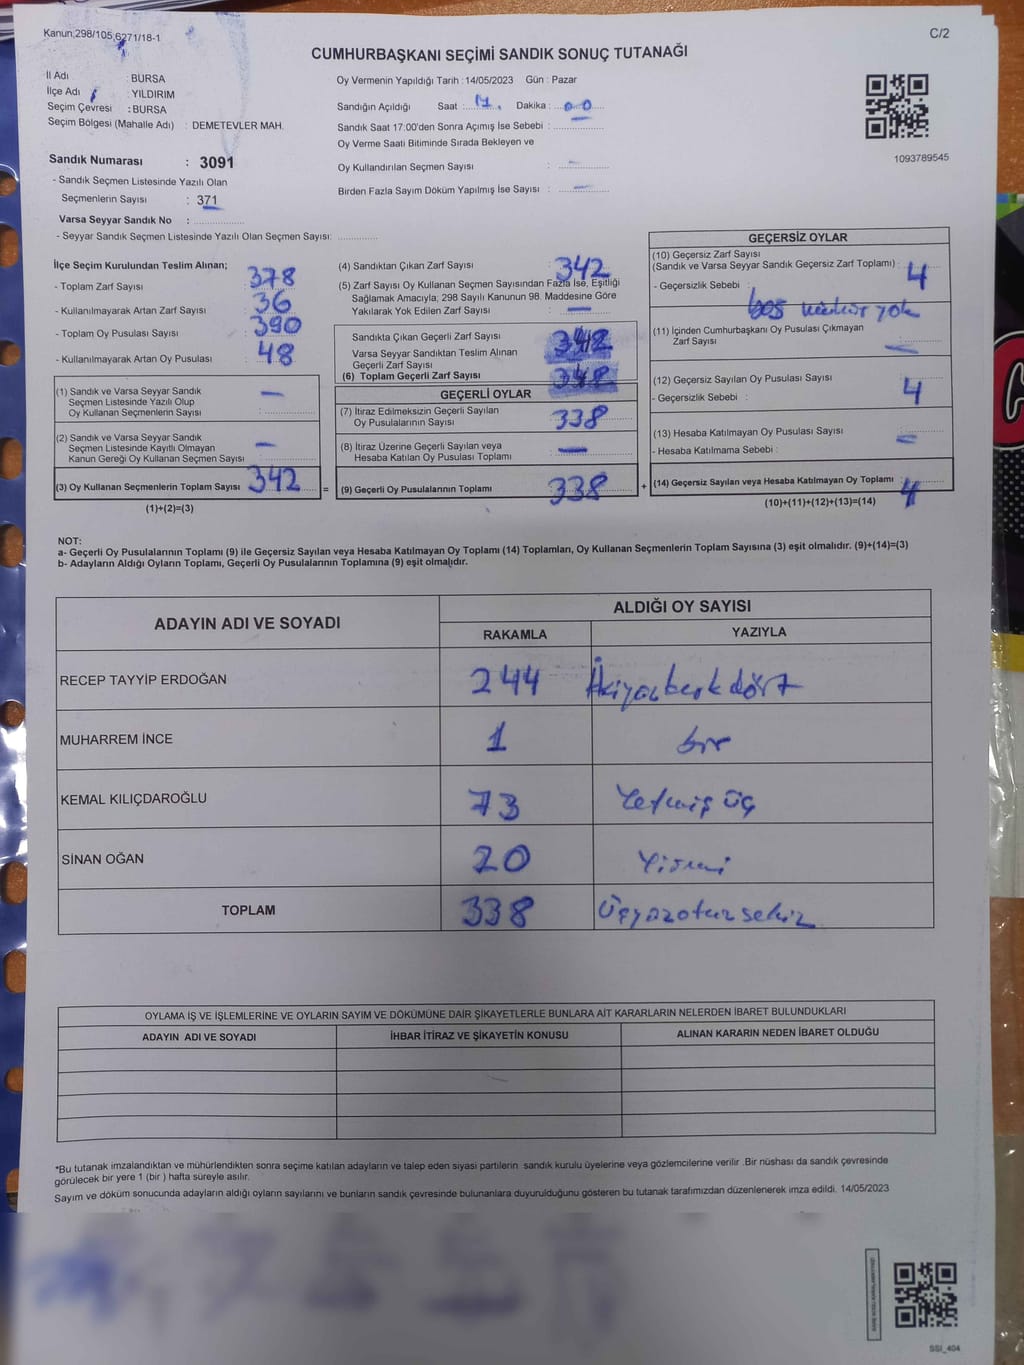 Kanun;298/105,6271/18-1
C/2
CUMHURBAŞKANI SEÇİMİ SANDIK SONUÇ TUTANAĞI
İl Adı : BURSA
İlçe Adı : YILDIRIM
Seçim Çevresi : BURSA
Seçim Bölgesi (Mahalle Adı) : DEMETEVLER MAH.
Oy Vermenin Yapıldığı Tarih : 14/05/2023 Gün : Pazar
Sandığın Açıldığı Saat : Dakika : 00
Sandık Saat 17:00'den Sonra Açımış İse Sebebi :
Oy Verme Saati Bitiminde Sırada Bekleyen ve
Oy Kullandırılan Seçmen Sayısı : -
Birden Fazla Sayım Döküm Yapılmış İse Sayısı : -
1093789545
Sandık Numarası : 3091
- Sandık Seçmen Listesinde Yazılı Olan
Seçmenlerin Sayısı : 371
Varsa Seyyar Sandık No :
- Seyyar Sandık Seçmen Listesinde Yazılı Olan Seçmen Sayısı:
İlçe Seçim Kurulundan Teslim Alınan;
- Toplam Zarf Sayısı : 378
- Kullanılmayarak Artan Zarf Sayısı : 36
- Toplam Oy Pusulası Sayısı : 390
- Kullanılmayarak Artan Oy Pusulası : 48
(1) Sandık ve Varsa Seyyar Sandık
Seçmen Listesinde Yazılı Olup
Oy Kullanan Seçmenlerin Sayısı : -
(2) Sandık ve Varsa Seyyar Sandık
Seçmen Listesinde Kayıtlı Olmayan
Kanun Gereği Oy Kullanan Seçmen Sayısı : -
(3) Oy Kullanan Seçmenlerin Toplam Sayısı 342
(1)+(2)=(3)
(4) Sandıktan Çıkan Zarf Sayısı : 342
(5) Zarf Sayısı Oy Kullanan Seçmen Sayısından Fazla İse, Eşitliği
Sağlamak Amacıyla; 298 Sayılı Kanunun 98. Maddesine Göre
Yakılarak Yok Edilen Zarf Sayısı : -
Sandıkta Çıkan Geçerli Zarf Sayısı
Varsa Seyyar Sandıktan Teslim Alınan
Geçerli Zarf Sayısı
(6) Toplam Geçerli Zarf Sayısı
GEÇERLİ OYLAR
(7) İtiraz Edilmeksizin Geçerli Sayılan
Oy Pusulalarının Sayısı : 338
(8) İtiraz Üzerine Geçerli Sayılan veya
Hesaba Katılan Oy Pusulası Toplamı : -
= (9) Geçerli Oy Pusulalarının Toplamı : 338
GEÇERSİZ OYLAR
(10) Geçersiz Zarf Sayısı
(Sandık ve Varsa Seyyar Sandık Geçersiz Zarf Toplamı) : 4
- Geçersizlik Sebebi :
boş mühür yok
(11) İçinden Cumhurbaşkanı Oy Pusulası Çıkmayan
Zarf Sayısı : -
(12) Geçersiz Sayılan Oy Pusulası Sayısı : 4
- Geçersizlik Sebebi :
(13) Hesaba Katılmayan Oy Pusulası Sayısı : -
- Hesaba Katılmama Sebebi :
+ (14) Geçersiz Sayılan veya Hesaba Katılmayan Oy Toplamı : 4
(10)+(11)+(12)+(13)=(14)
NOT:
a- Geçerli Oy Pusulalarının Toplamı (9) ile Geçersiz Sayılan veya Hesaba Katılmayan Oy Toplamı (14) Toplamları, Oy Kullanan Seçmenlerin Toplam Sayısına (3) eşit olmalıdır. (9)+(14)=(3)
b- Adayların Aldığı Oyların Toplamı, Geçerli Oy Pusulalarının Toplamına (9) eşit olmalıdır.
ADAYIN ADI VE SOYADI
ALDIĞI OY SAYISI
RAKAMLA YAZIYLA
RECEP TAYYİP ERDOĞAN 244 İkiyüzkırkdört
MUHARREM İNCE 1 bir
KEMAL KILIÇDAROĞLU 73 Yetmiş üç
SİNAN OĞAN 20 Yirmi
TOPLAM 338 Üçyüzotuzsekiz
OYLAMA İŞ VE İŞLEMLERİNE VE OYLARIN SAYIM VE DÖKÜMÜNE DAİR ŞİKAYETLERLE BUNLARA AİT KARARLARIN NELERDEN İBARET BULUNDUKLARI
ADAYIN ADI VE SOYADI İHBAR İTİRAZ VE ŞİKAYETİN KONUSU ALINAN KARARIN NEDEN İBARET OLDUĞU
*Bu tutanak imzalandıktan ve mühürlendikten sonra seçime katılan adayların ve talep eden siyasi partilerin sandık kurulu üyelerine veya gözlemcilerine verilir .Bir nüshası da sandık çevresinde
görülecek bir yere 1 (bir ) hafta süreyle asılır.
Sayım ve döküm sonucunda adayların aldığı oyların sayılarını ve bunların sandık çevresinde bulunanlara duyurulduğunu gösteren bu tutanak tarafımızdan düzenlenerek imza edildi. 14/05/2023
SSİ_404